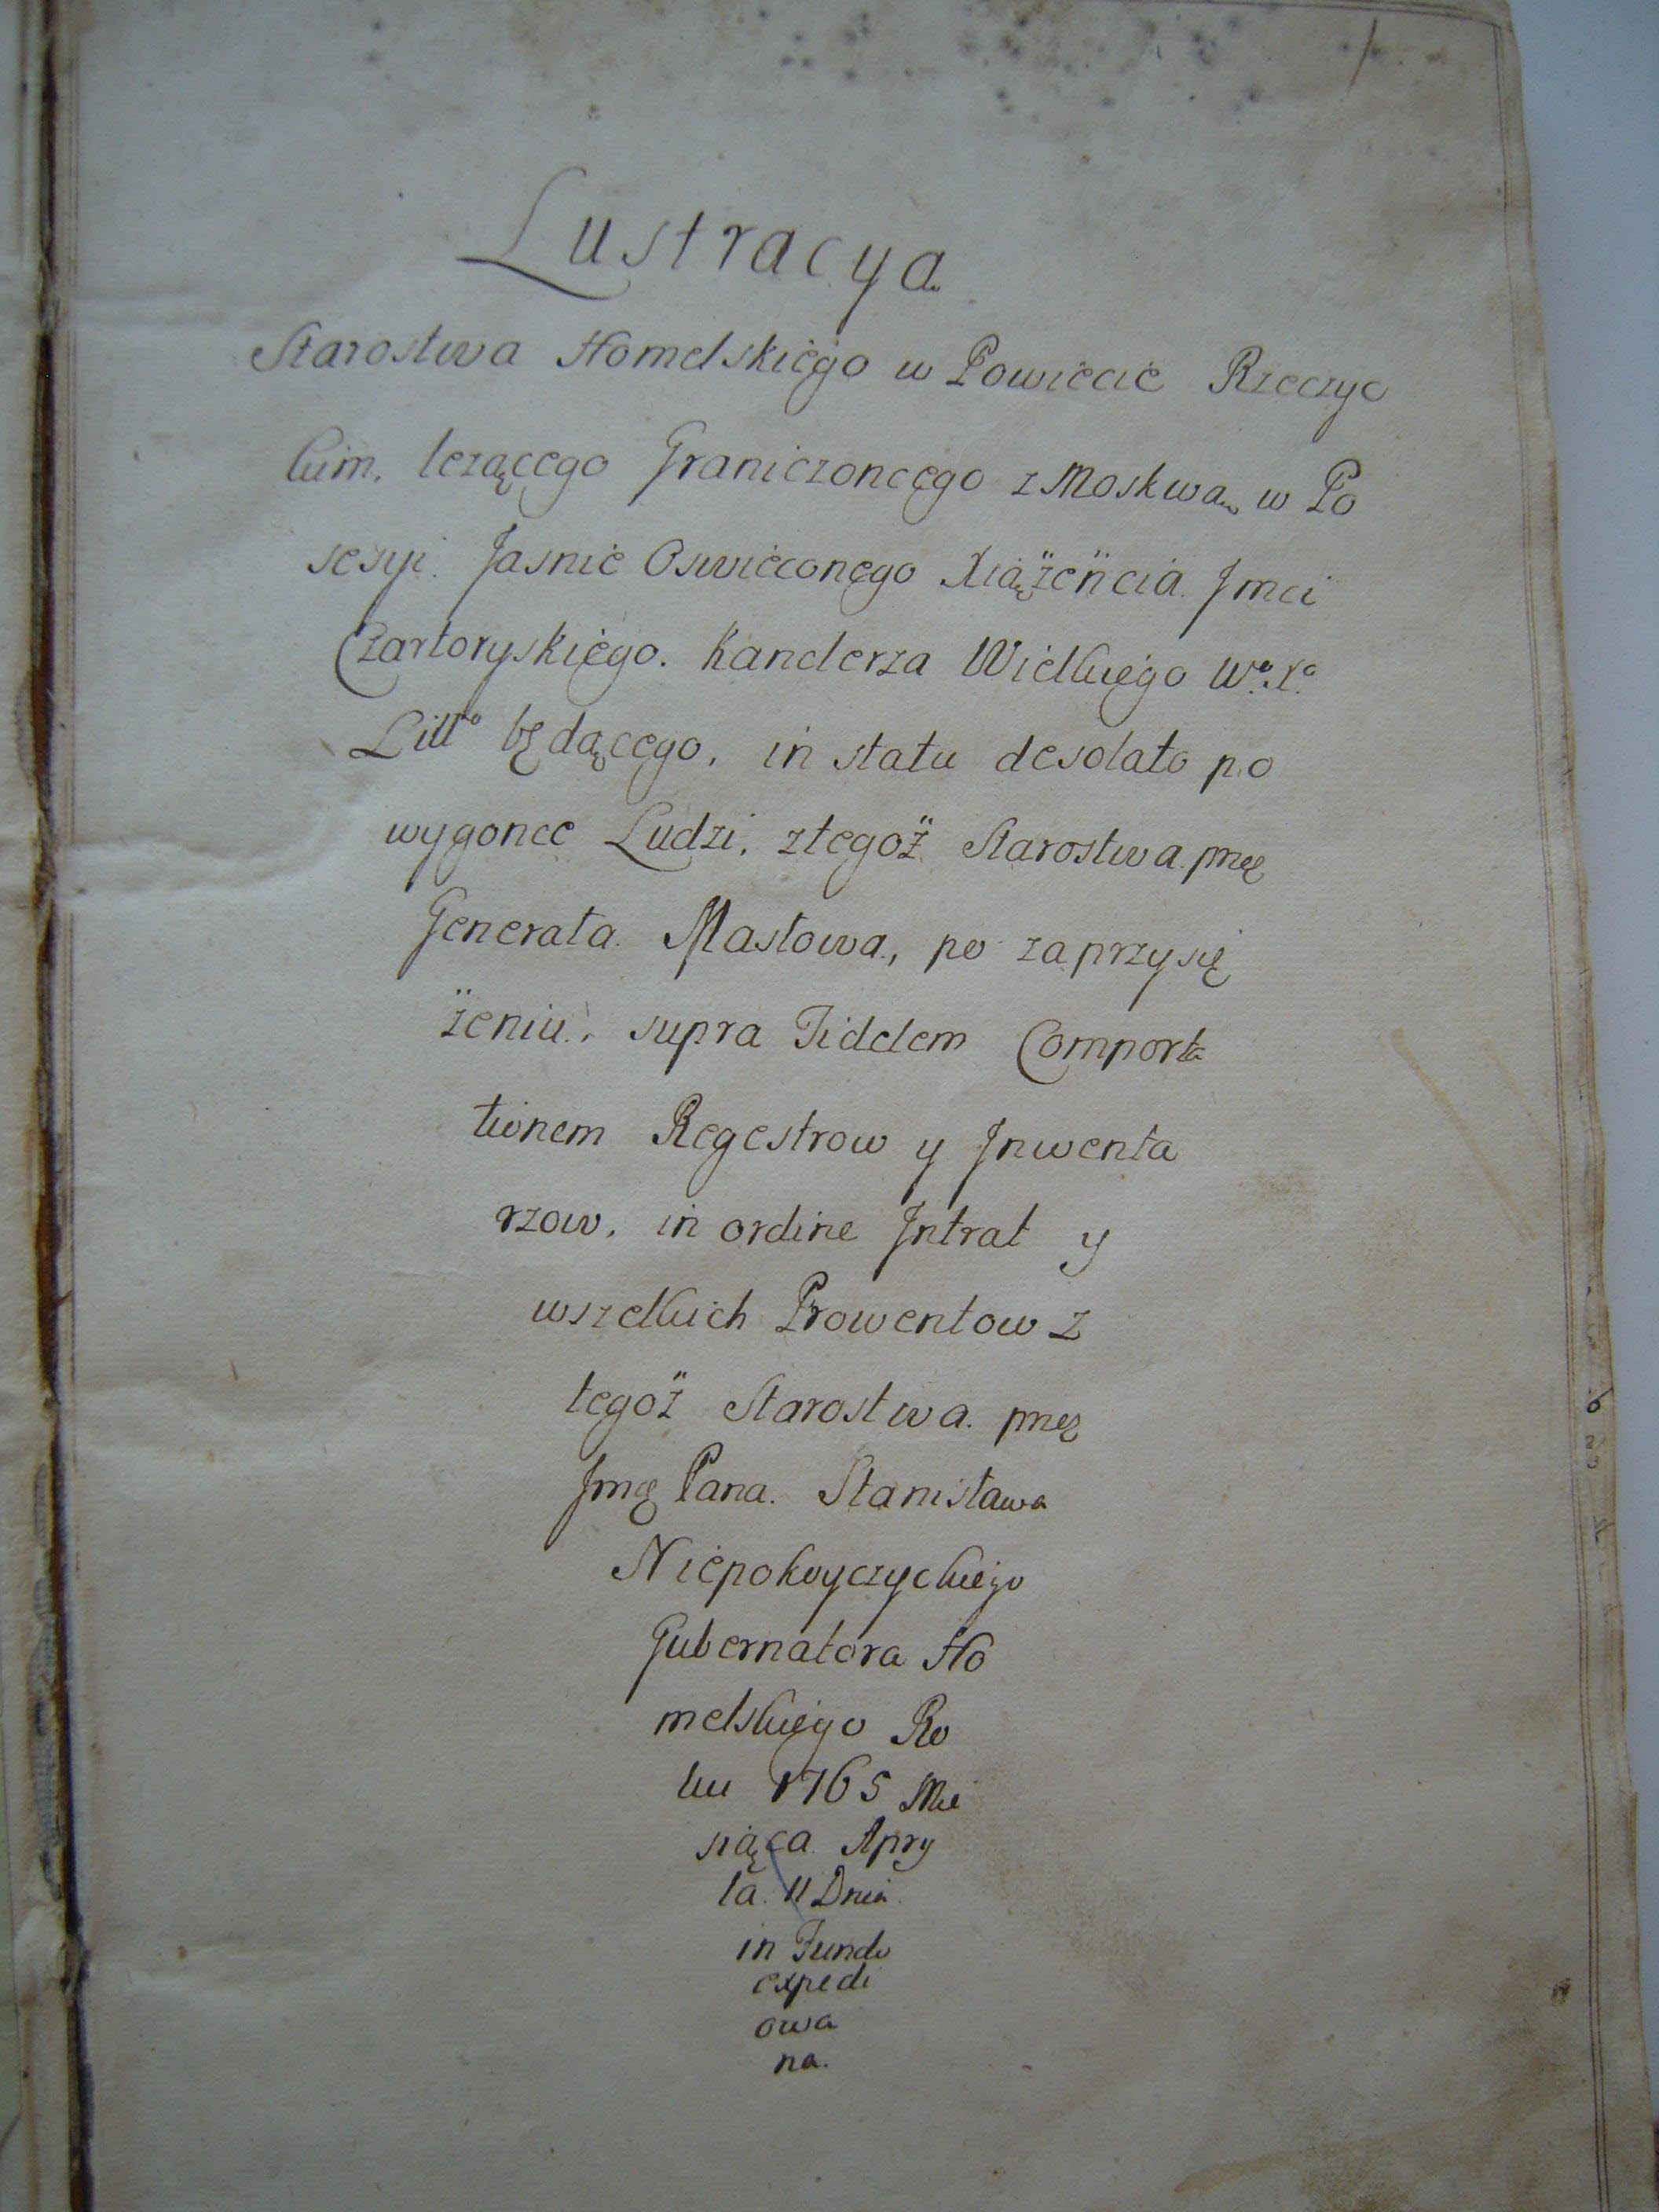 Lustracya
Starostwa Homelskiego w Powiecie Rzeczyc
kim. lezącego Graniczoncego z Moskwą w Po
sesyi. Jasnie Oswieconego Xiążęncia. Jmci
Czartoryskiego. Kanclerza Wielkiego Wo. Xo.
Litto będącego, in statu desolato po
wygonce Ludzi, z tegoż Starostwa. przez
Generała. Masłowa., po zaprzysię
żeniu., supra Fidelem Comporta
tionem Regestrow y Jnwenta
rzow, in ordine Jntrat y
wszelkich Prowentow z
tegoż Starostwa. przez
Jmę Pana. Stanisława
Niepokoyczyckiego
Gubernatora Ho
melskiego Ro
ku 1765 Mie
siąca. Apry
la. 11 Dnia.
in Fundo
expedi
owa
na.